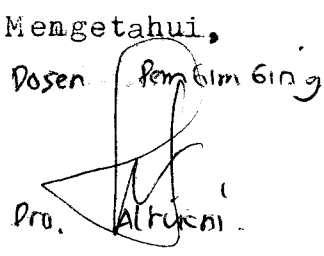 Mengetahui,
Dosen Pembimbing
Dra.